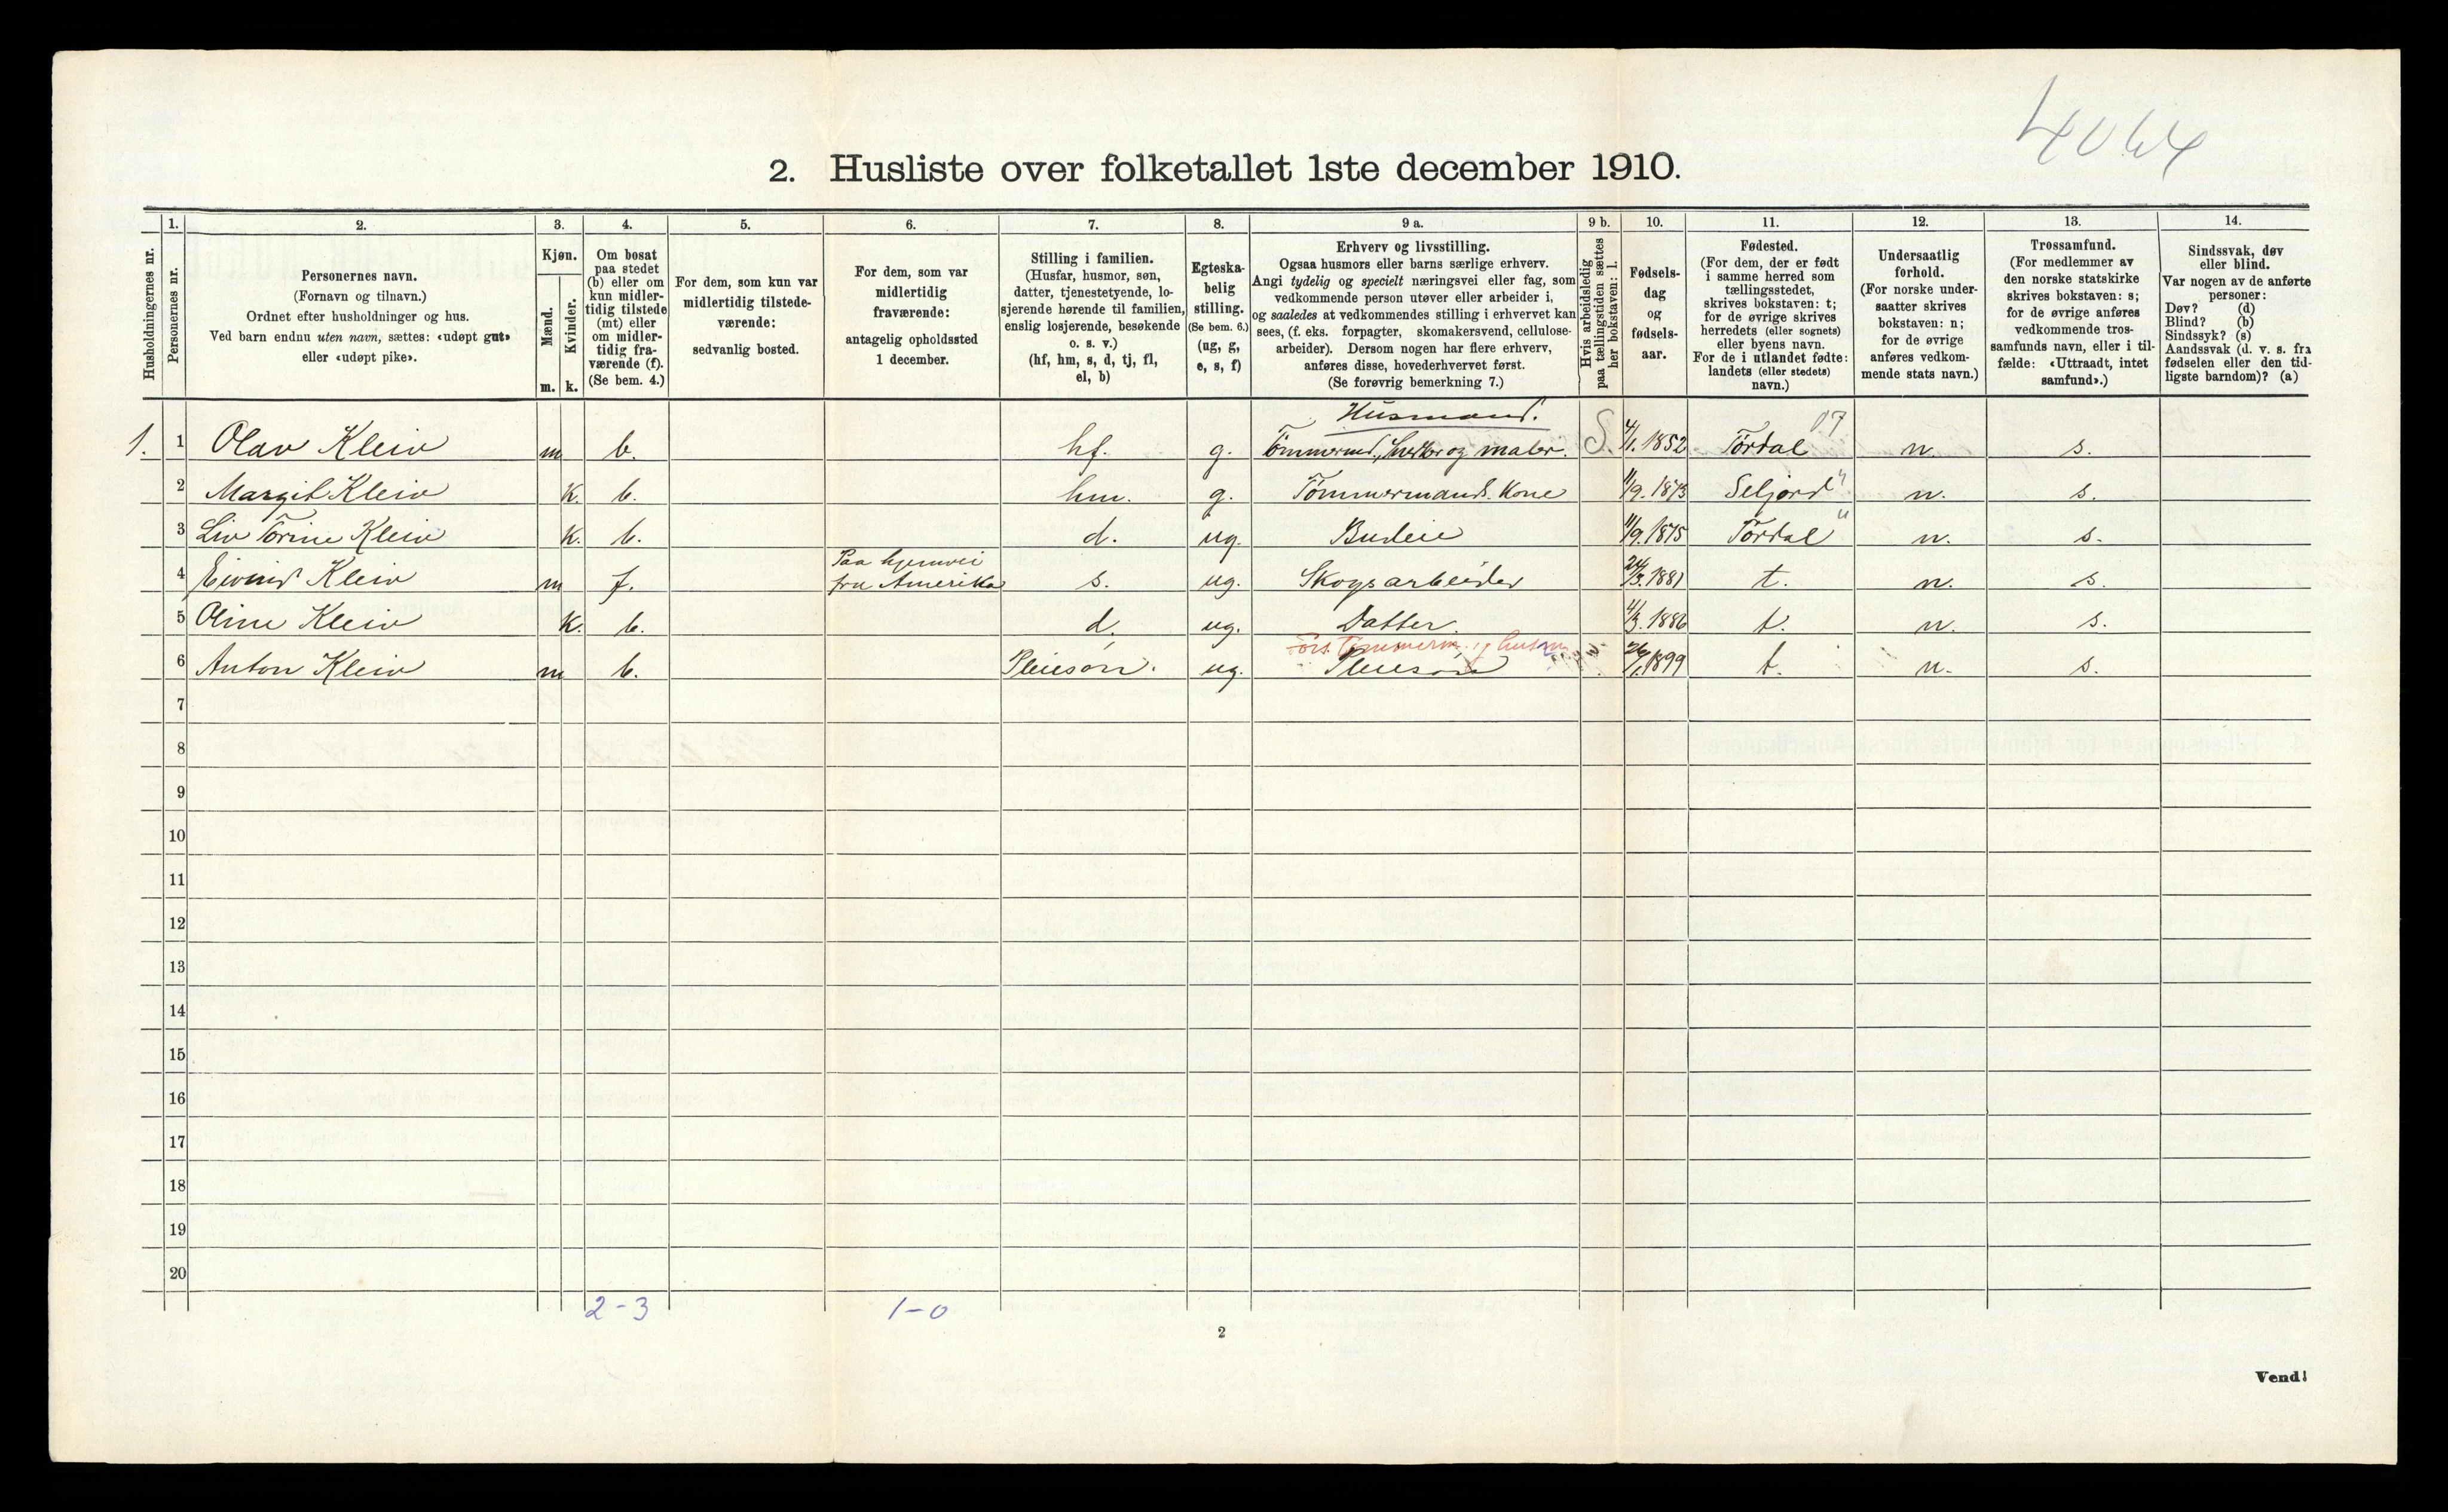 4044
2. Husliste over folketallet 1ste december 1910.
Husholdningernes nr.
1.
Personernes nr.
2.
Personernes navn.
(Fornavn og tilnavn.)
Ordnet efter husholdninger og hus.
Ved barn endnu uten navn, sættes: «udøpt gut»
eller «udøpt pike».
3.
Kjøn.
Mænd.
Kvinder.
m. k.
4.
Om bosat
paa stedet
(b) eller om
kun midler-
tidig tilstede
(mt) eller
om midler-
tidig fra-
værende (f).
(Se bem. 4.)
5.
For dem, som kun var
midlertidig tilstede-
værende:
sedvanlig bosted.
6.
For dem, som var
midlertidig
fraværende:
antagelig opholdssted
1 december.
7.
Stilling i familien.
(Husfar, husmor, søn,
datter, tjenestetyende, lo-
sjerende hørende til familien,
enslig losjerende, besøkende
o. s. v.)
(hf, hm, s, d, tj, fl,
el, b)
8.
Egteska-
belig
stilling.
(Se bem. 6.)
(ug, g,
e, s, f)
9 a.
Erhverv og livsstilling.
Ogsaa husmors eller barns særlige erhverv.
Angi tydelig og specielt næringsvei eller fag, som
vedkommende person utøver eller arbeider i,
og saaledes at vedkommendes stilling i erhvervet kan
sees, (f. eks. forpagter, skomakersvend, cellulose-
arbeider). Dersom nogen har flere erhverv,
anføres disse, hovederhvervet først.
(Se forøvrig bemerkning 7.)
9 b.
Hvis arbeidsledig
paa tællingstiden sættes
her bokstaven: l.
10.
Fødsels-
dag
og
fødsels-
aar.
11.
Fødested.
(For dem, der er født
i samme herred som
tællingsstedet,
skrives bokstaven: t;
for de øvrige skrives
herredets (eller sognets)
eller byens navn.
For de i utlandet fødte:
landets (eller stedets)
navn.)
12.
Undersaatlig
forhold.
(For norske under-
saatter skrives
bokstaven: n;
for de øvrige
anføres vedkom-
mende stats navn.)
13.
Trossamfund.
(For medlemmer av
den norske statskirke
skrives bokstaven: s;
for de øvrige anføres
vedkommende tros-
samfunds navn, eller i til-
fælde: «Uttraadt, intet
samfund».)
14.
Sindssvak, døv
eller blind.
Var nogen av de anførte
personer:
Døv? (d)
Blind? (b)
Sindssyk? (s)
Aandssvak (d. v. s. fra
fødselen eller den tid-
ligste barndom)? (a)
Husmand. 17
1. 1 Olav Kleiv m b. hf. g. Tømmermd., Snedker og maler. S. 4/1. 1852 Tørdal n. s.
2 Margit Kleiv k. b. hm. g. Tømmermands Kone 11/9. 1873 Seljord " n. s.
3 Liv Torine Kleiv k. b. d. ug. Budeie 11/9. 1875 Tørdal " n. s.
Paa hjemvei
4 Eivind Kleiv m f. fra Amerika s. ug. Skogsarbeider 24/3. 1881 t. n. s.
5 Oline Kleiv k. b. d. ug. Datter. 4/3. 1886 t. n. s.
fors. Tømmerm. og husm.
6 Anton Kleiv m b. Pleiesøn. ug. Pleiesøn 26/1. 1899 t. n. s.
7
8
9
10
11
12
13
14
15
16
17
18
19
20
2-3 1-0
2
Vend!